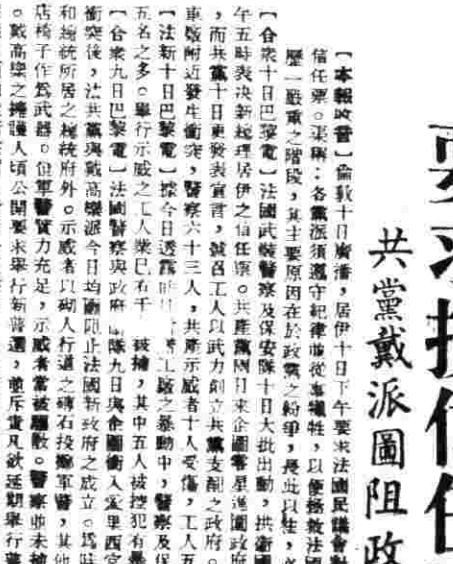 要求投信任
共黨戴派圖阻政
【本報收音】倫敦十日廣播，居伊十日下午要求法國民議會對
信任票。渠稱：各黨派須遵守紀律並從事犧牲，以便拯救法國
歷一嚴重之階段，其主要原因在於政黨之紛爭，
【合衆十日巴黎電】法國武裝警察及保安隊十日大批出動，拱衛國
午五時表決新總理居伊之信任票。共產黨兩日來企圖
，而共黨十日更發表宣言，號召工人以武力創立共黨支配之政府。
車廠附近發生衝突，警察六十三人，共產示威者十人受傷，工人五
【法新十日巴黎電】據今日透露 工廠之暴動中，警察及保
五名之多。舉行示威之工人業已有千 被捕，其中五人被控犯有
【合衆九日巴黎電】法國警察與政府 隊九日與企圖衝入愛里西宮
衝突後，法共黨與戴高樂派今日均 阻止法國新政府之成立。
和總統所居之總統府外。示威者以砌人行道之磚石投擲軍警，其他
店椅子作爲武器。但軍警實力充足，示威者當被驅散。警察並未
。戴高樂之擁護人頃公開要求舉行新普選，並斥責凡欲延期舉行